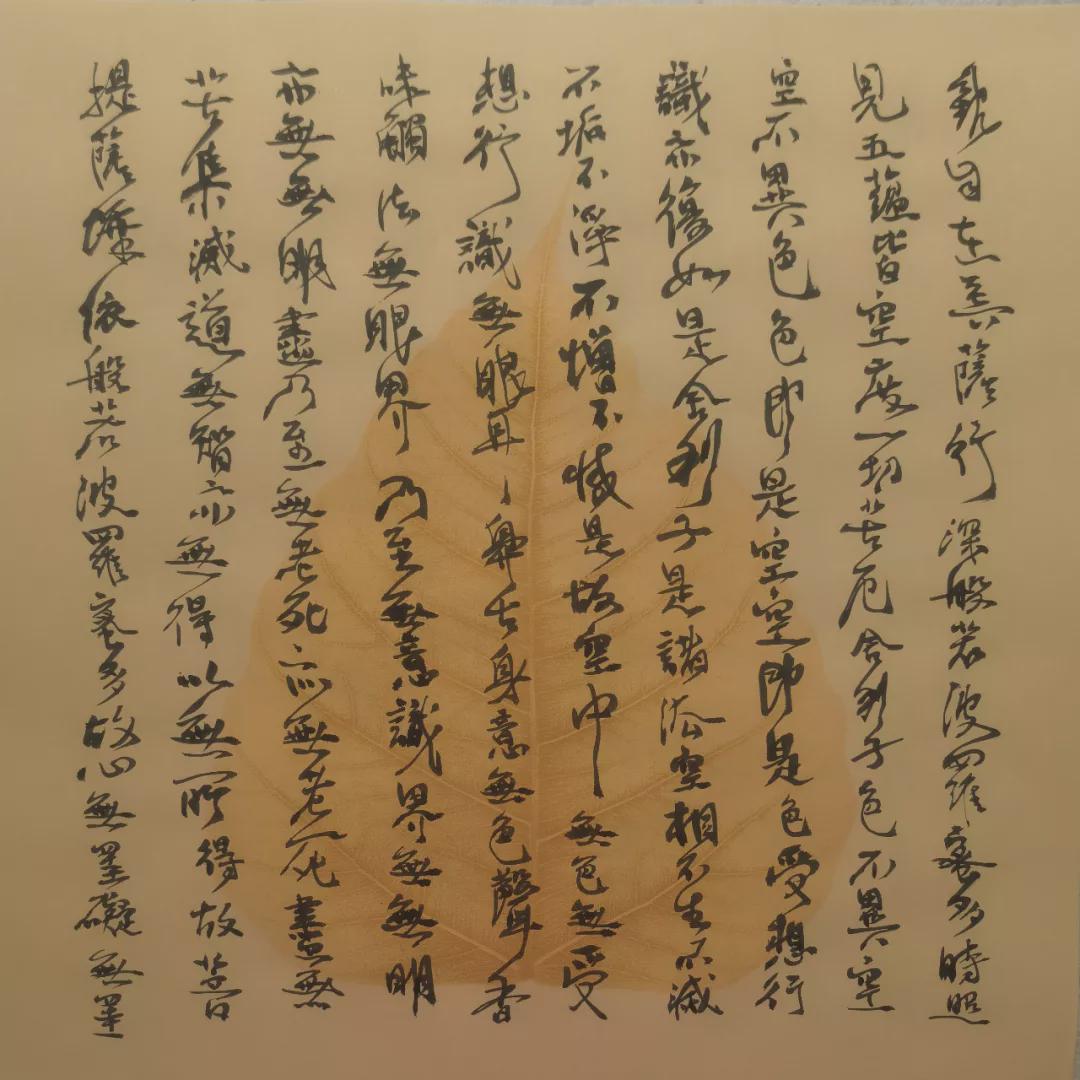 觀自在菩薩行深般若波羅蜜多時照
見五蘊皆空度一切苦厄舍利子色不異空
空不異色色即是空空即是色受想行
識亦復如是舍利子是諸法空相不生不滅
不垢不淨不增不減是故空中無色無受
想行識無眼耳鼻舌身意無色聲香
味觸法無眼界乃至無意識界無無明
亦無無明盡乃至無老死亦無老死盡無
苦集滅道無智亦無得以無所得故菩
提薩埵依般若波羅蜜多故心無罣礙無罣